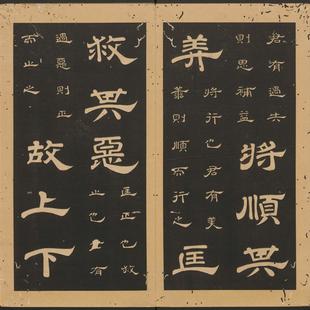 君有過失
則思補益
將順其
美
將行也君有美
善則順而行之
匡
救其惡
匡正也救
止也君有
過惡則正
而止之
故上下